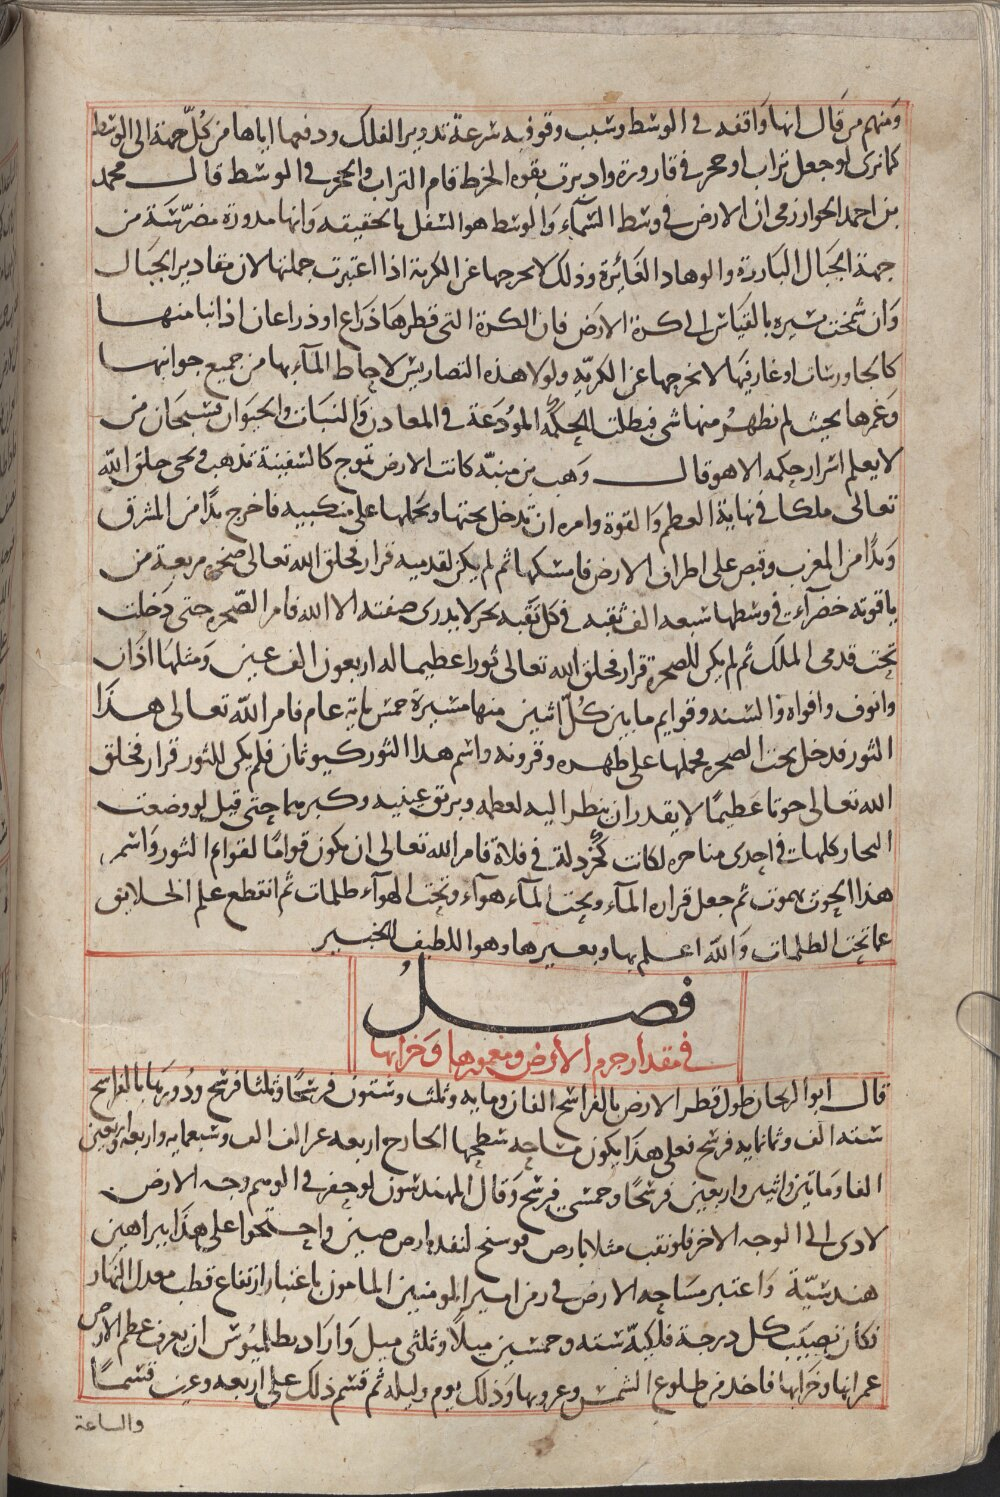 ومنهم من قال انها واقفه في الوسط وسبب وقوفه سرعة تدوير الفلك ودفعها اياها من كل جهة الى الوسط
كما ترى لو جعل تراب او حجر في قارورة واديرت بقوه الخرط قام التراب والحجر في الوسط قال محمد
بن احمد الخوارزمى ان الارض في وسط السماء والوسط هو السفل بالحقيقه وانها مدورة مضرسة من
جهة الجبال البارزة والوهاد الغائرة وذلك لا يخرجها عن الكرية اذا اعتبرت جملتها لان مقادير الجبال
وان شمخت يسيره بالقياس الى كرة الارض فان الكرة التى قطرها ذراع او ذراعان اذا نبا منها
كالجاورسات او غار فيها لا يخرجها عن الكرية ولولا هذه التضاريس لاحاط المآء بها من جميع جوانبها
وغمرها بحيث لم تظهر منها شى فبطلت الحكمة المودعة في المعادن والنبات والحيوان فسبحان من
لا يعلم اسرار حكمه الا هو وقال وهب بن منبه كانت الارض تموج كالسفينة تذهب وتجى فخلق الله
تعالى ملكا في نهاية العظم والقوة وامره ان تدخل تحتها ويحملها على منكبيه فاخرج يدا من المشرق
ويدا من المغرب وقبض على اطراف الارض فامسكها ثم لم يكن لقدميه قرار فخلق الله تعالى صخره مربعة من
ياقوته خضرآء في وسطها سبعه الف ثقبه في كل ثقبه بحر لا يدرى صفته الا الله فامر الصخره حتى دخلت
تحت قدمى الملك ثم لم يكن للصخرة قرار فخلق الله تعالى ثورا عظيما له اربعون الف عين ومثلها اذان
وانوف وافواه والسنه وقوايم ما بين كل اثنين منها مسيرة خمس ماية عام فامر الله تعالى هذا
الثور فدخل تحت الصخره فحملها على ظهره وقرونه واسم هذا الثور كيوثان فلم يكن للثور قرار فخلق
الله تعالى حوتا عظيمًا لا يقدر ان ينظر اليه لعظمه وبريق عينيه وكبرهما حتى قيل لو وضعت
البحار كلها في احدى مناخره لكانت كخردلة في فلاة فامر الله تعالى ان يكون قواما لقوايم الثور واسم
هذا الحوت بهموت ثم جعل قراره المآء وتحت المآء هوآء وتحت الهوآء ظلمات ثم انقطع علم الخلايق
عما تحت الظلمات والله اعلم بها وبغيرها وهو اللطيف الخبير
فصل
في مقدار جرم الارض ومعمورها وخرابها
قال ابو الريحان طول قطر الارض بالفراسخ الفان ومايه وثلث وستون فرسخًا وثلثا فرسخ ودورتها بالفراسخ
سته الف وثمانمايه فرسخ فعلى هذا يكون مساحه سطحها الخارج اربعه عر الف الف وسبعمايه واربعه واربعين
الفا ومايتين واثنين واربعين فرسخًا وخمسى فرسخ وقال المهندسون لو حفر في الوهم وجه الارض
لادى الى الوجه الاخر فلو نقب مثلا بارض فوسنج لنفد بارض صين واحتجوا على هذا ببراهين
هندسيّة واعتبر مساحه الارض في زمن امير المومنين المامون باعتبار ارتفاع قطب معدل النهار
فكان نصيب كل درجة فلكيّة سته وخمسين ميلاً وثلثى ميل واراد بطلميوس ان يعرف عظم الارض
عمرانها وخرابها فاخذ من طلوع الشمس وغروبها وذلك يوم وليله ثم قسم ذلك على اربعه وعرين قسمًا
والساعة